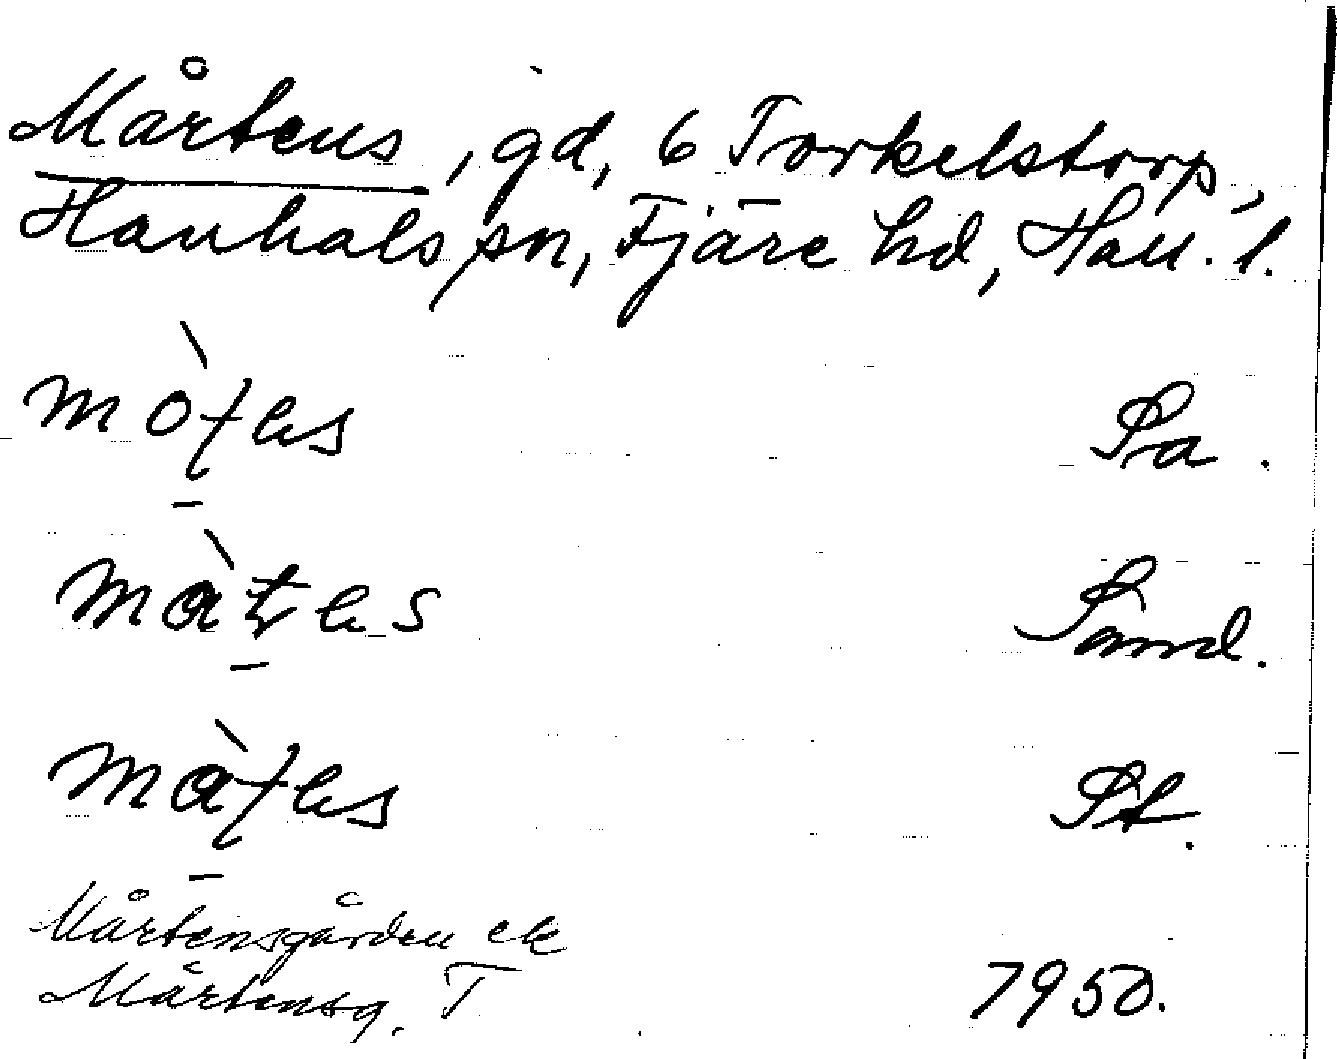 Mårtens, gd, 6 Torkelstorp,
Hanhals sn, Fjäre hd, Hall. l.
Sa.
Sand.
St.
Mårtensgården ek
Mårtensg. T
1950.